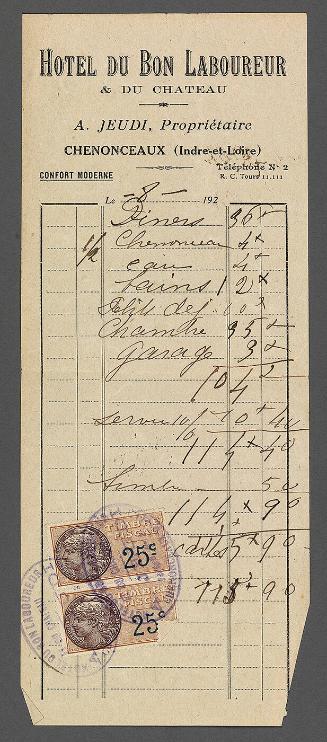 HOTEL DU BON LABOUREUR
& DU CHATEAU
A. JEUDI, Propriétaire
CHENONCEAUX (Indre-et-Loire)
Téléphone N° 2
CONFORT MODERNE
R. C. Tours 11.111
Le -8- 192
Diners 36
1/2 Chenonceau 4
eau 4
bains 12
Petits dej. 10
Chambre 35
garage 3
104
service 10% 10 40
114 40
Timbre 50
114 90
cartes 90
90
TIMBRE FISCAL
25c
TIMBRE FISCAL
25c
DU BON LABOUREUR